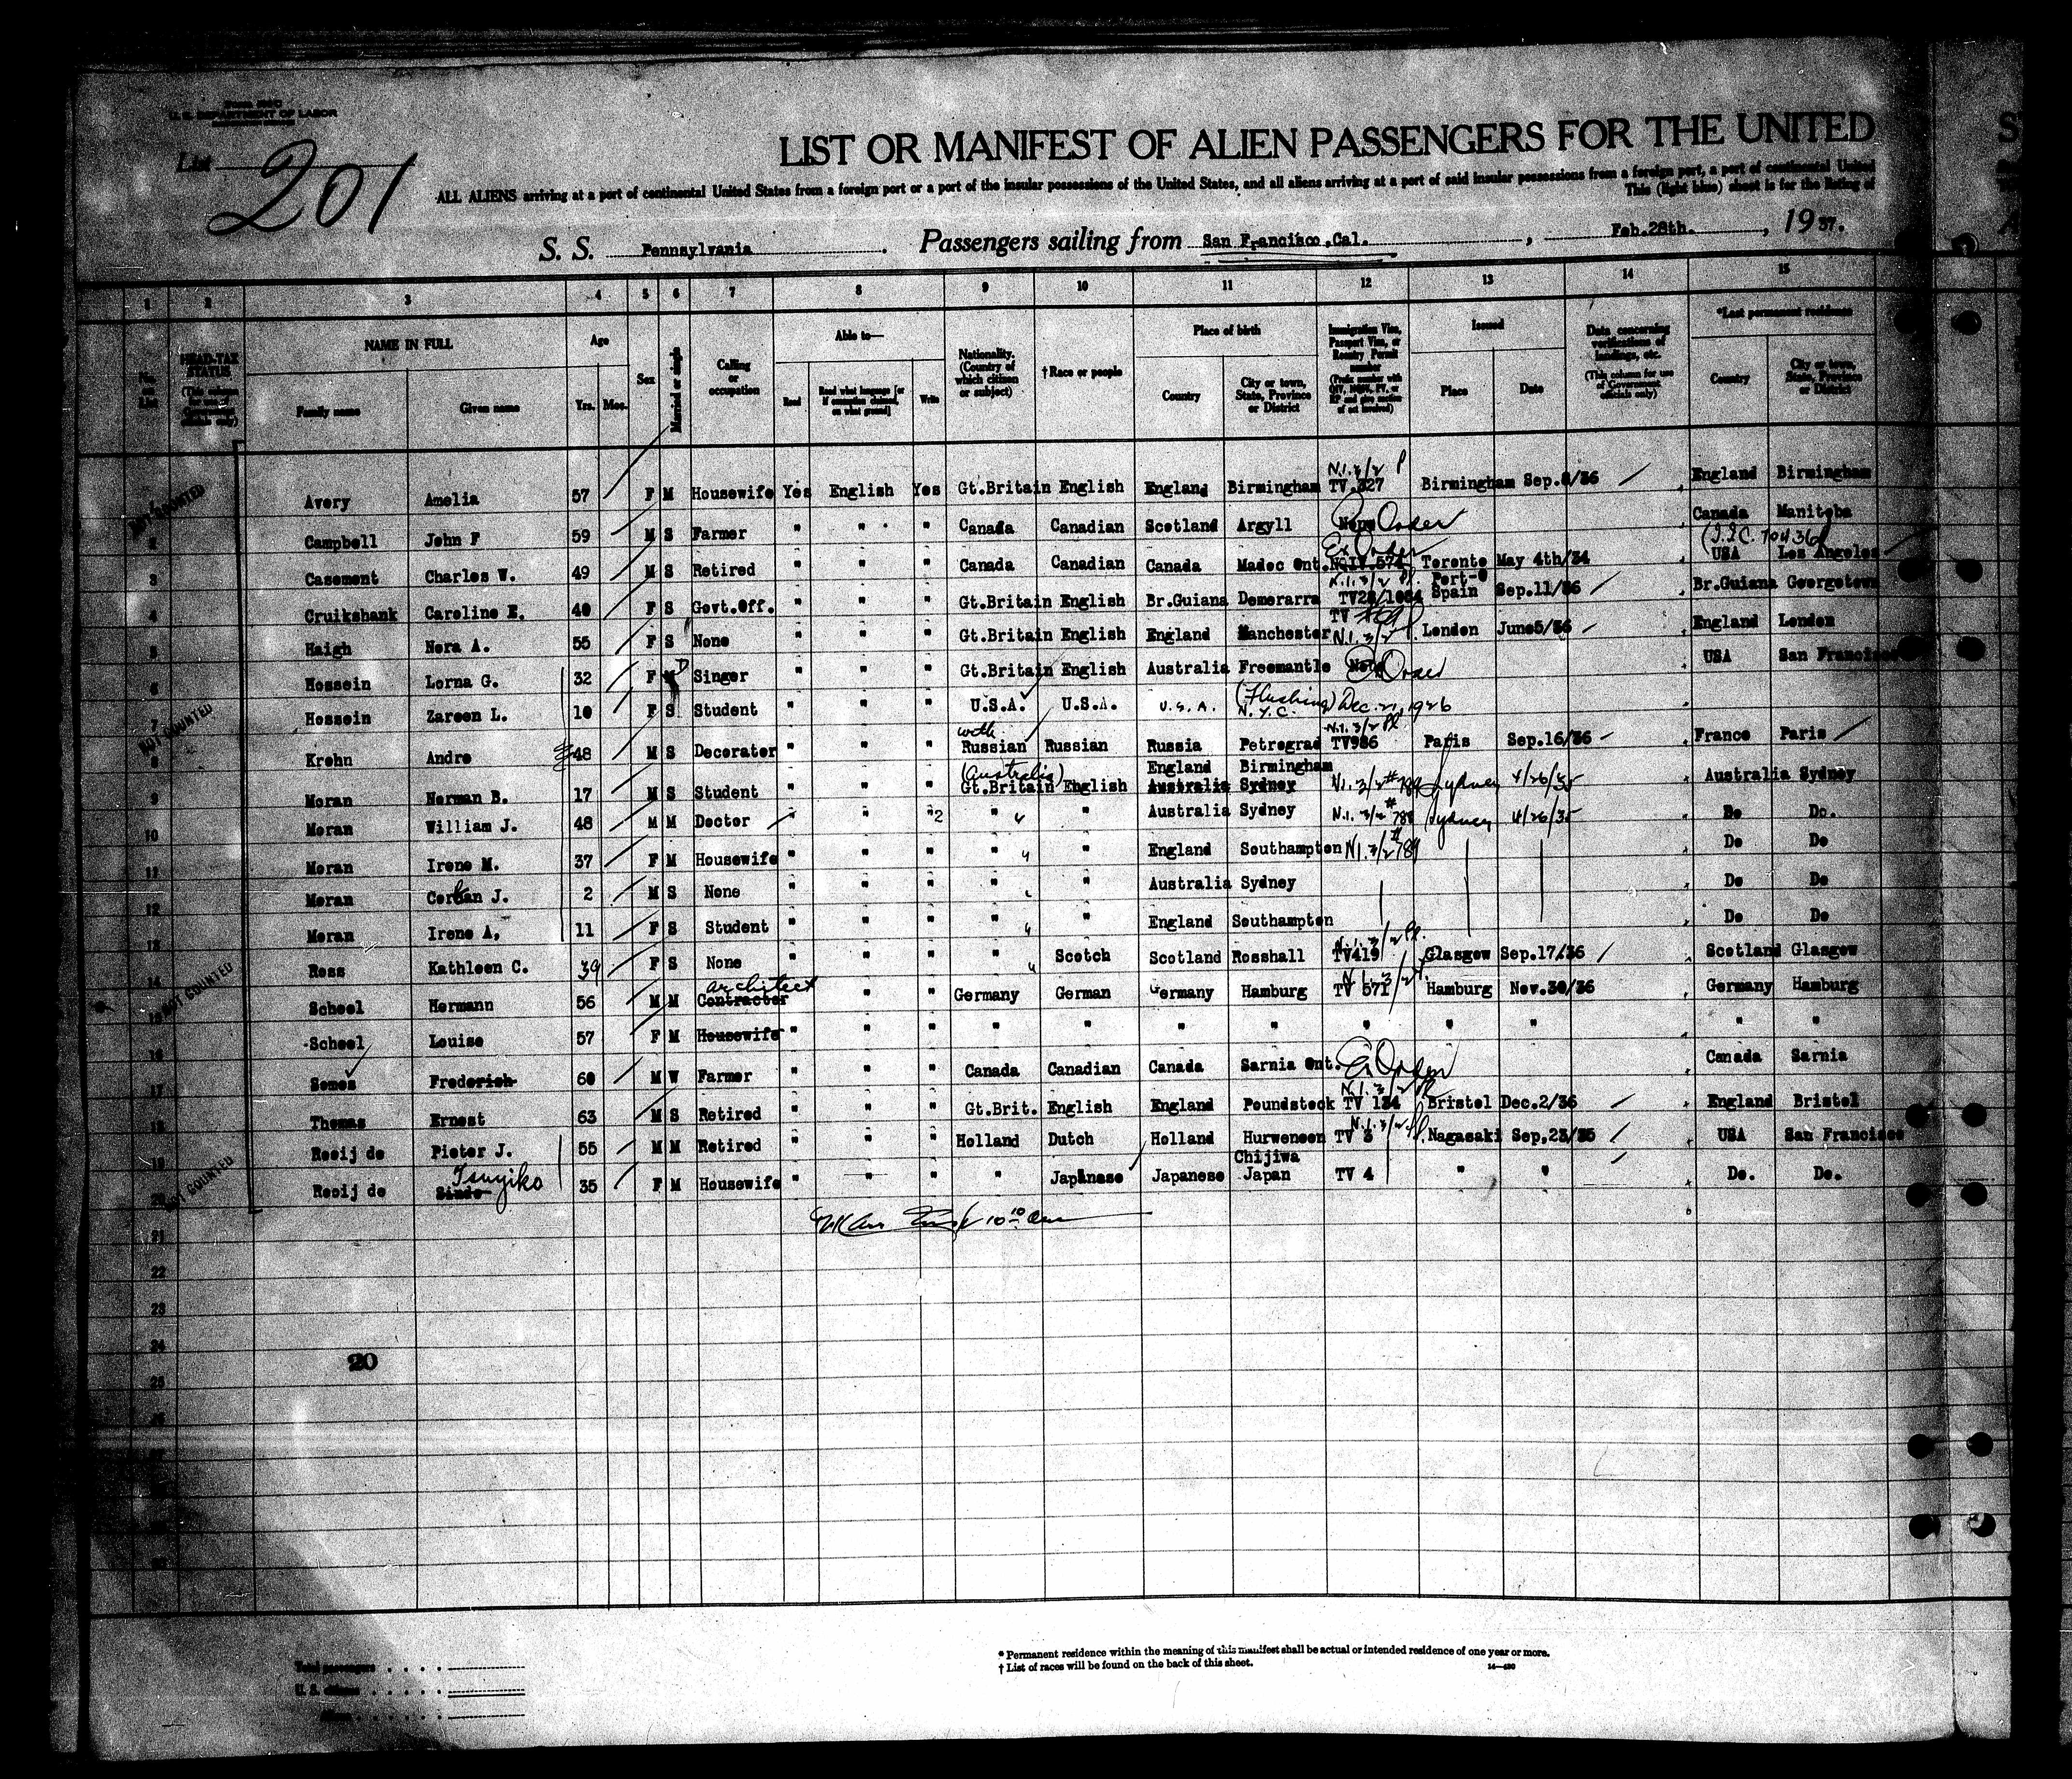 U. S. DEPARTMENT OF LABOR
List 201
LIST OR MANIFEST OF ALIEN PASSENGERS FOR THE UNITED
ALL ALIENS arriving at a port of continental United States from a foreign port or a port of the insular possessions of the United States, and all aliens arriving at a port of said insular possessions from a foreign port, a port of continental United
This (light blue) sheet is for the listing of
S. S. Pennsylvania. Passengers sailing from San Francisco, Cal., Feb. 28th., 1937.
1 2 3 4 5 6 7 8 9 10 11 12 13 14 15
No. on List
HEAD-TAX STATUS (This column for use of Government officials only)
NAME IN FULL Family name Given name
Age Yrs. Mos.
Sex
Married or single
Calling or occupation
Able to— Read Read what language [or if exemption claimed, on what ground] Write
Nationality. (Country of which citizen or subject)
†Race or people
Place of birth Country City or town, State, Province or District
Immigration Visa, Passport Visa, or Reentry Permit number
Issued Place Date
Data concerning verifications of landings, etc. (This column for use of Government officials only)
*Last permanent residence Country City or town, State, Province or District
Avery Amelia 57 F M Housewife Yes English Yes Gt.Britain English England Birmingham N.I. 3/2 TV 327 Birmingham Sep.8/36 England Birmingham
2 Campbell John F 59 M S Farmer " " " Canada Canadian Scotland Argyll None Ex Order Canada Manitoba
3 Casement Charles W. 49 M S Retired " " " Canada Canadian Canada Madoc Ont. Ex Order Toronto May 4th/34 USA Los Angeles
4 Cruikshank Caroline E. 40 F S Govt.Off. " " " Gt.Britain English Br.Guiana Demerarra N.I. 3/2 Port-O Spain Sep.11/36 Br.Guiana Georgetown
5 Haigh Nora A. 55 F S None " " " Gt.Britain English England Manchester TV N.I. 3/2 London June5/36 England London
6 Hossein Lorna G. 32 F D Singer " " " Gt.Britain English Australia Freemantle None Ex Order USA San Francisco
7 Hossein Zareen L. 10 F S Student " " " U.S.A. U.S.A. U.S.A. (Flushing) N.Y.C. Dec. 21, 1926
8 Krohn Andre 48 M S Decorator " " " Russian Russian Russia Petrograd N.I. 3/2 TV986 Paris Sep.16/36 France Paris
9 Moran Norman B. 17 M S Student " " " (Australia) Gt.Britain English England Birmingham Australia Sydney N.I. 3/2 #789 Sydney 4/26/35 Australia Sydney
10 Moran William J. 48 M M Doctor " " " " Australia Sydney N.I. 3/2 #789 Sydney 4/26/35 Do Do.
11 Moran Irene M. 37 F M Housewife " " " " " England Southampton N.I. 3/2 #789 Do Do
12 Moran J. 2 M S None " " " " " Australia Sydney Do Do
13 Moran Irene A. 11 F S Student " " " " " England Southampton Do Do
14 Ross Kathleen C. 39 F S None " " " " Scotch Scotland Rosshall N.I. 3/2 TV419 Glasgow Sep.17/36 Scotland Glasgow
15 Scheel Hermann 56 M M Contractor architect " " Germany German Germany Hamburg N.I. 3/2 TV 571 Hamburg Nov.30/36 Germany Hamburg
16 Scheel Louise 57 F M Housewife " " " " " " " " " " " "
17 Somes Frederich 60 M W Farmer " " " Canada Canadian Canada Sarnia Ont. Ex Order Canada Sarnia
18 Thomas Ernest 63 M S Retired " " " Gt.Brit. English England Poundstock N.I. 3/2 TV 134 Bristol Dec.2/36 England Bristol
19 Rooij de Pieter J. 55 M M Retired " " " Holland Dutch Holland Hurwenen N.I. 3/2 TV 3 Nagasaki Sep.23/35 USA San Francisco
20 Rooij de Tsuyiko 35 F M Housewife " " " " Japanese Japanese Chijiwa Japan TV 4 " " Do. Do.
NOT COUNTED
NOT COUNTED
NOT COUNTED
NOT COUNTED
21
22
23
24
20
25
* Permanent residence within the meaning of this manifest shall be actual or intended residence of one year or more.
† List of races will be found on the back of this sheet.
14—430
Total passengers
U. S. citizens
Aliens